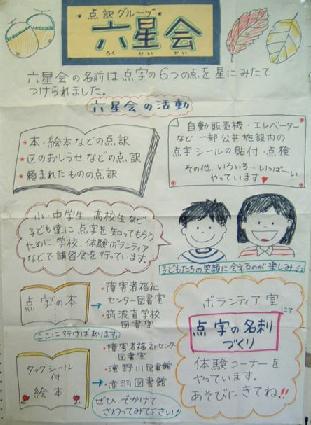 点訳グループ
六星会
ろく せい かい
六星会の名前は点字の6つの点を星にみたて
つけられました。
六星会の活動
・本・絵本などの点訳
・区のおしらせなどの点訳
・頼まれたものの点訳
自動販売機・エレベーター
など一部公共施設内の
点字シールの貼付・点検
その他、いろいろ いっぱい
やっています
小・中学生、高校生など
子ども達に点字を知ってもらう
ために学校、体験ボランティア
などで講習会を行っています。
子どもたちの笑顔に会えるのが楽しみ
点字の本
・障害者福祉
センター図書室
・筑波直学校
図書室
ここに行けばあります
タックシール
付
絵本
・障害者福祉センター
図書室
・滝野川図書館
・赤羽図書館
ぜひ でかけて
さわってみて下さい
ボランティア室
にて
点字の名刺
づくり
体験コーナーを
やっています。
あそびにきてね!!